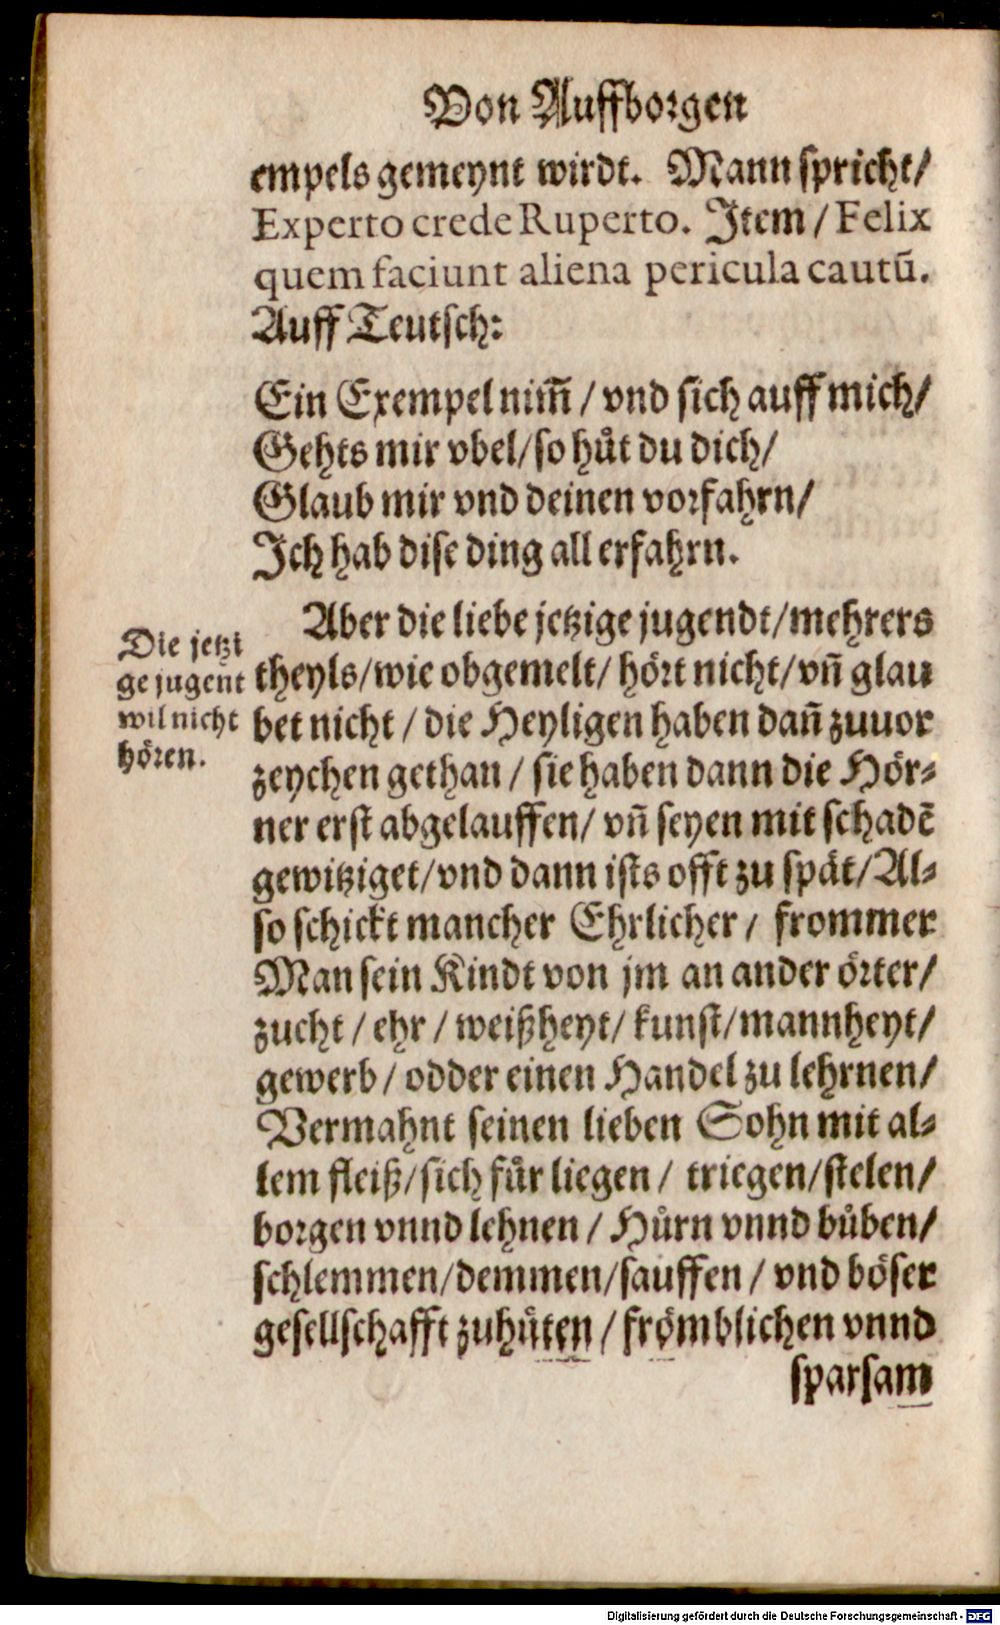 Von Auffborgen
empels gemeynt wirdt. Mann spricht/
Experto crede Ruperto. Item / Felix
quem faciunt aliena pericula cautū.
Auff Teutsch:
Ein Exempel nim̄ / vnd sich auff mich/
Gehts mir vbel/so huͤt du dich/
Glaub mir vnd deinen vorfahrn/
Ich hab dise ding all erfahrn.
Die jetzi
ge jugent
wil nicht
hoͤren.
Aber die liebe jetzige jugendt/mehrers
theyls/wie obgemelt/ hoͤrt nicht/vn̄ glau
bet nicht / die Heyligen haben dan̄ zuuor
zeychen gethan / sie haben dann die Hoͤr-
ner erst abgelauffen/ vn̄ seyen mit schadē
gewitziget/vnd dann ists offt zu spaͤt/Al-
so schickt mancher Ehrlicher / frommer
Man sein Kindt von jm an ander oͤrter/
zucht / ehr / weißheyt/ kunst/mannheyt/
gewerb / odder einen Handel zu lehrnen/
Vermahnt seinen lieben Sohn mit al-
lem fleiß/sich fuͤr liegen / triegen/stelen/
borgen vnnd lehnen / Huͤrn vnnd buͤben/
schlemmen/demmen/sauffen / vnd boͤser
gesellschafft zuhuͤten / froͤmblichen vnnd
sparsam
Digitalisierung gefördert durch die Deutsche Forschungsgemeinschaft - DFG